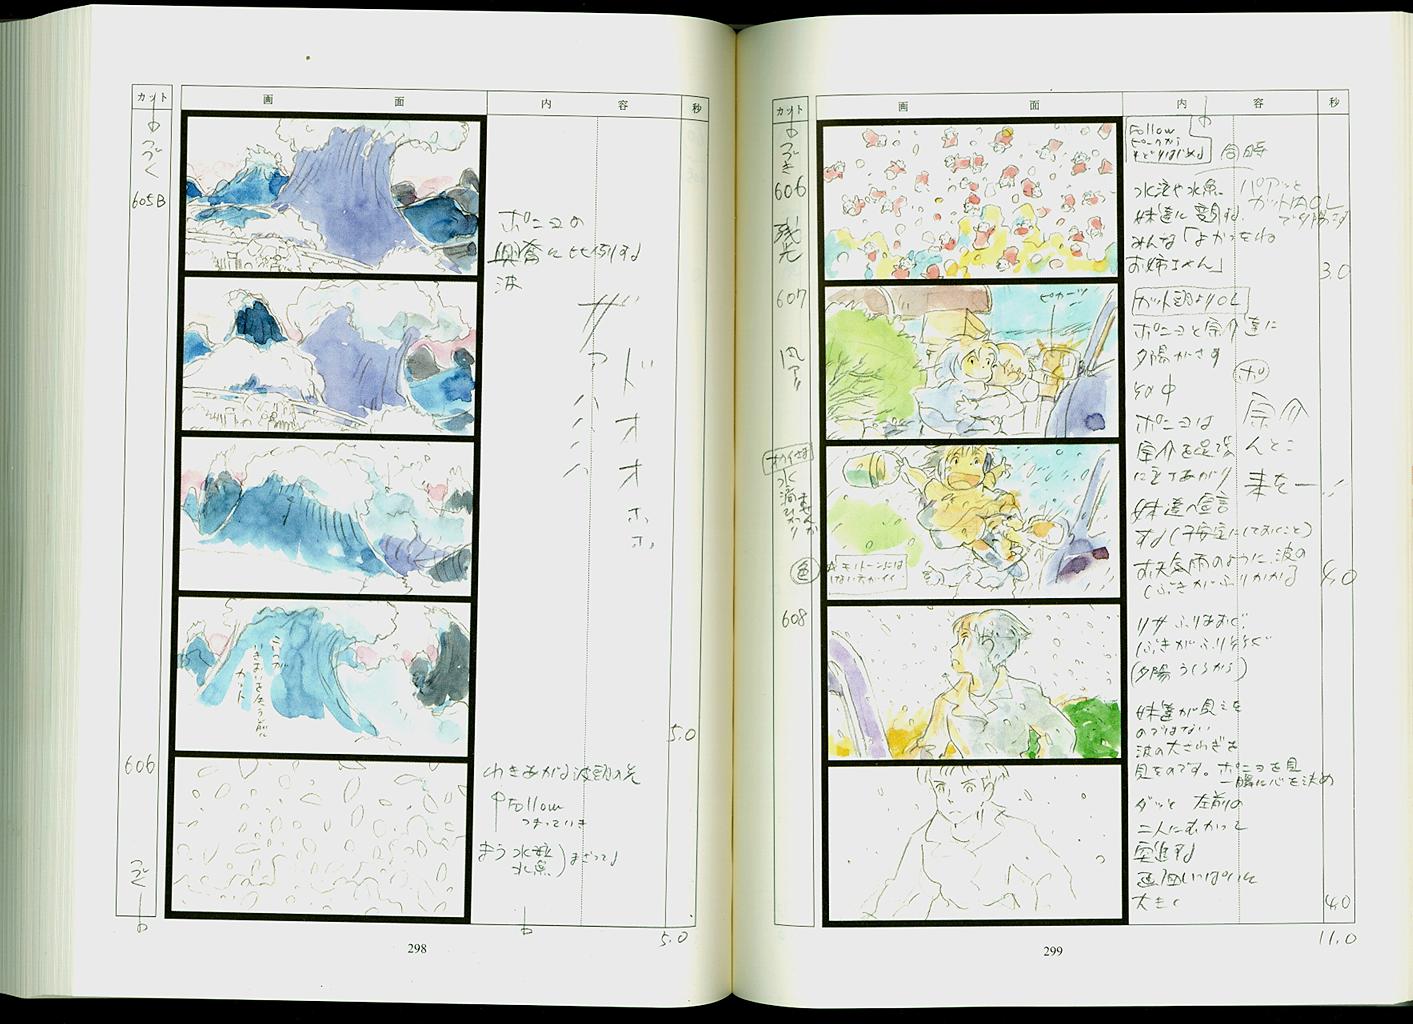 カット
画 面
内 容
秒
つづく
605B
ポニョの
興奮に比例する
波
ザァハハハハ
ドオオホホ
カット
5.0
606
わきあがる波頭の先
Follow
まう水粒
水魚
まざってる
つづく
5.0
298
カット
画 面
内 容
秒
つづき
606
残光
Follow
ピークから
もどりはじめる
同時
水泡や水魚
妹達に変身する
パアッと
カットNAOL
みんな「よかったね
お姉さん」
3.0
607
ピカーッ
カット頭よりOL
ポニョと宗介達に
夕陽がさす
ポ
宗介
んとこ
来たー!!
ポニョは
宗介を足場
に立てあがり
妹達へ宣言
する(子安定にしておくこと)
お天気雨のように波の
しぶきがふりかかる
4.0
水滴
色
モノトーンには
しない方がイイ
608
リサふりあおぐ
しぶきがふりそそぐ
(夕陽うしろから)
妹達が見えた
のではない
波の大さわぎを
見たのです。ポニョを見
一瞬に心を決め
ダッと 左前の
二人にむかって
突進する
画面いっぱいに
大きく
4.0
11.0
299